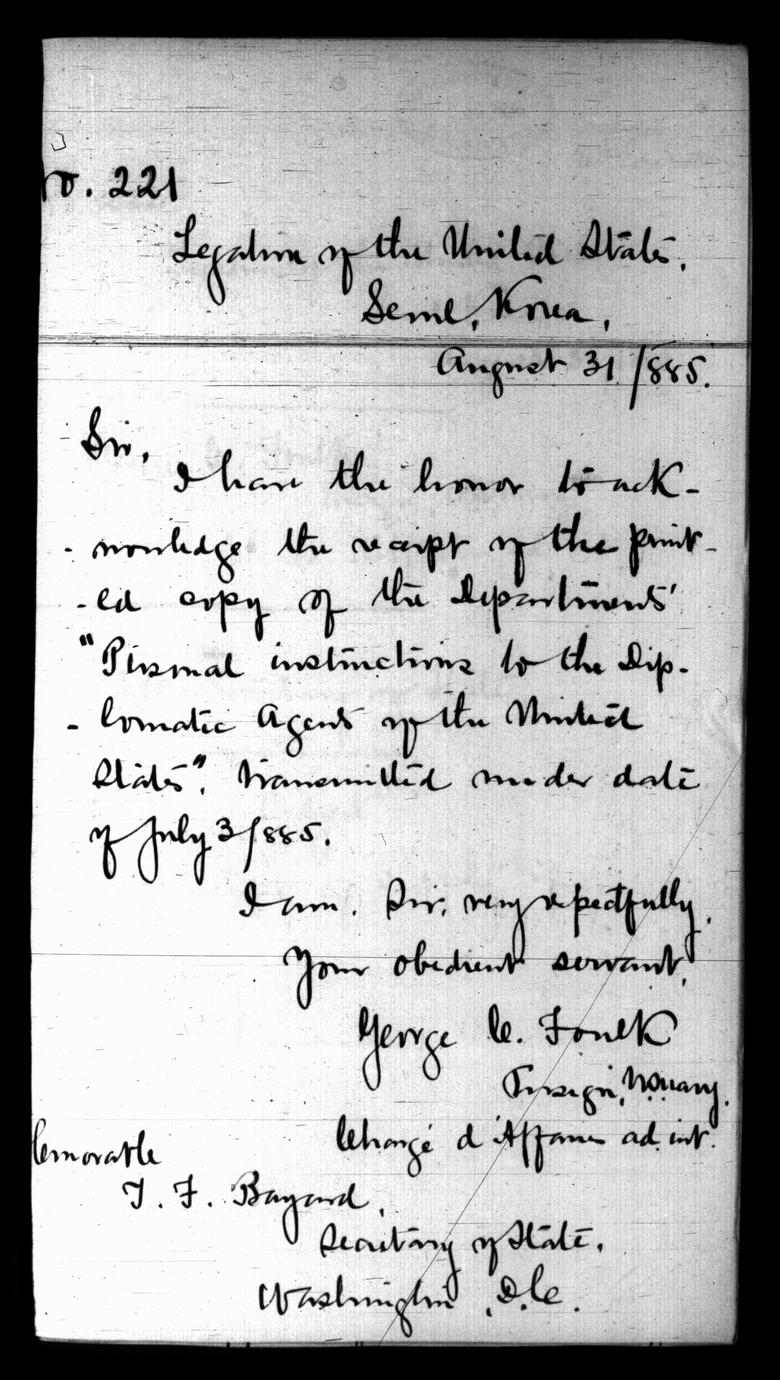 No. 221
Legation of the United States.
Seoul, Korea,
August 31 /885.
Sir,
I have the honor to ack-
- nowledge the receipt of the print-
- ed copy of the Departments'
"Personal instructions to the Dip-
- lomatic Agents of the United
States", transmitted under date
of July 3/885.
I am. Sir, very respectfully,
Your obedient servant,
George C. Foulk
Ensign, U.S. Navy.
Chargé d'Affaires ad. int.
Honorable
T. F. Bayard,
Secretary of State.
Washington, D.C.